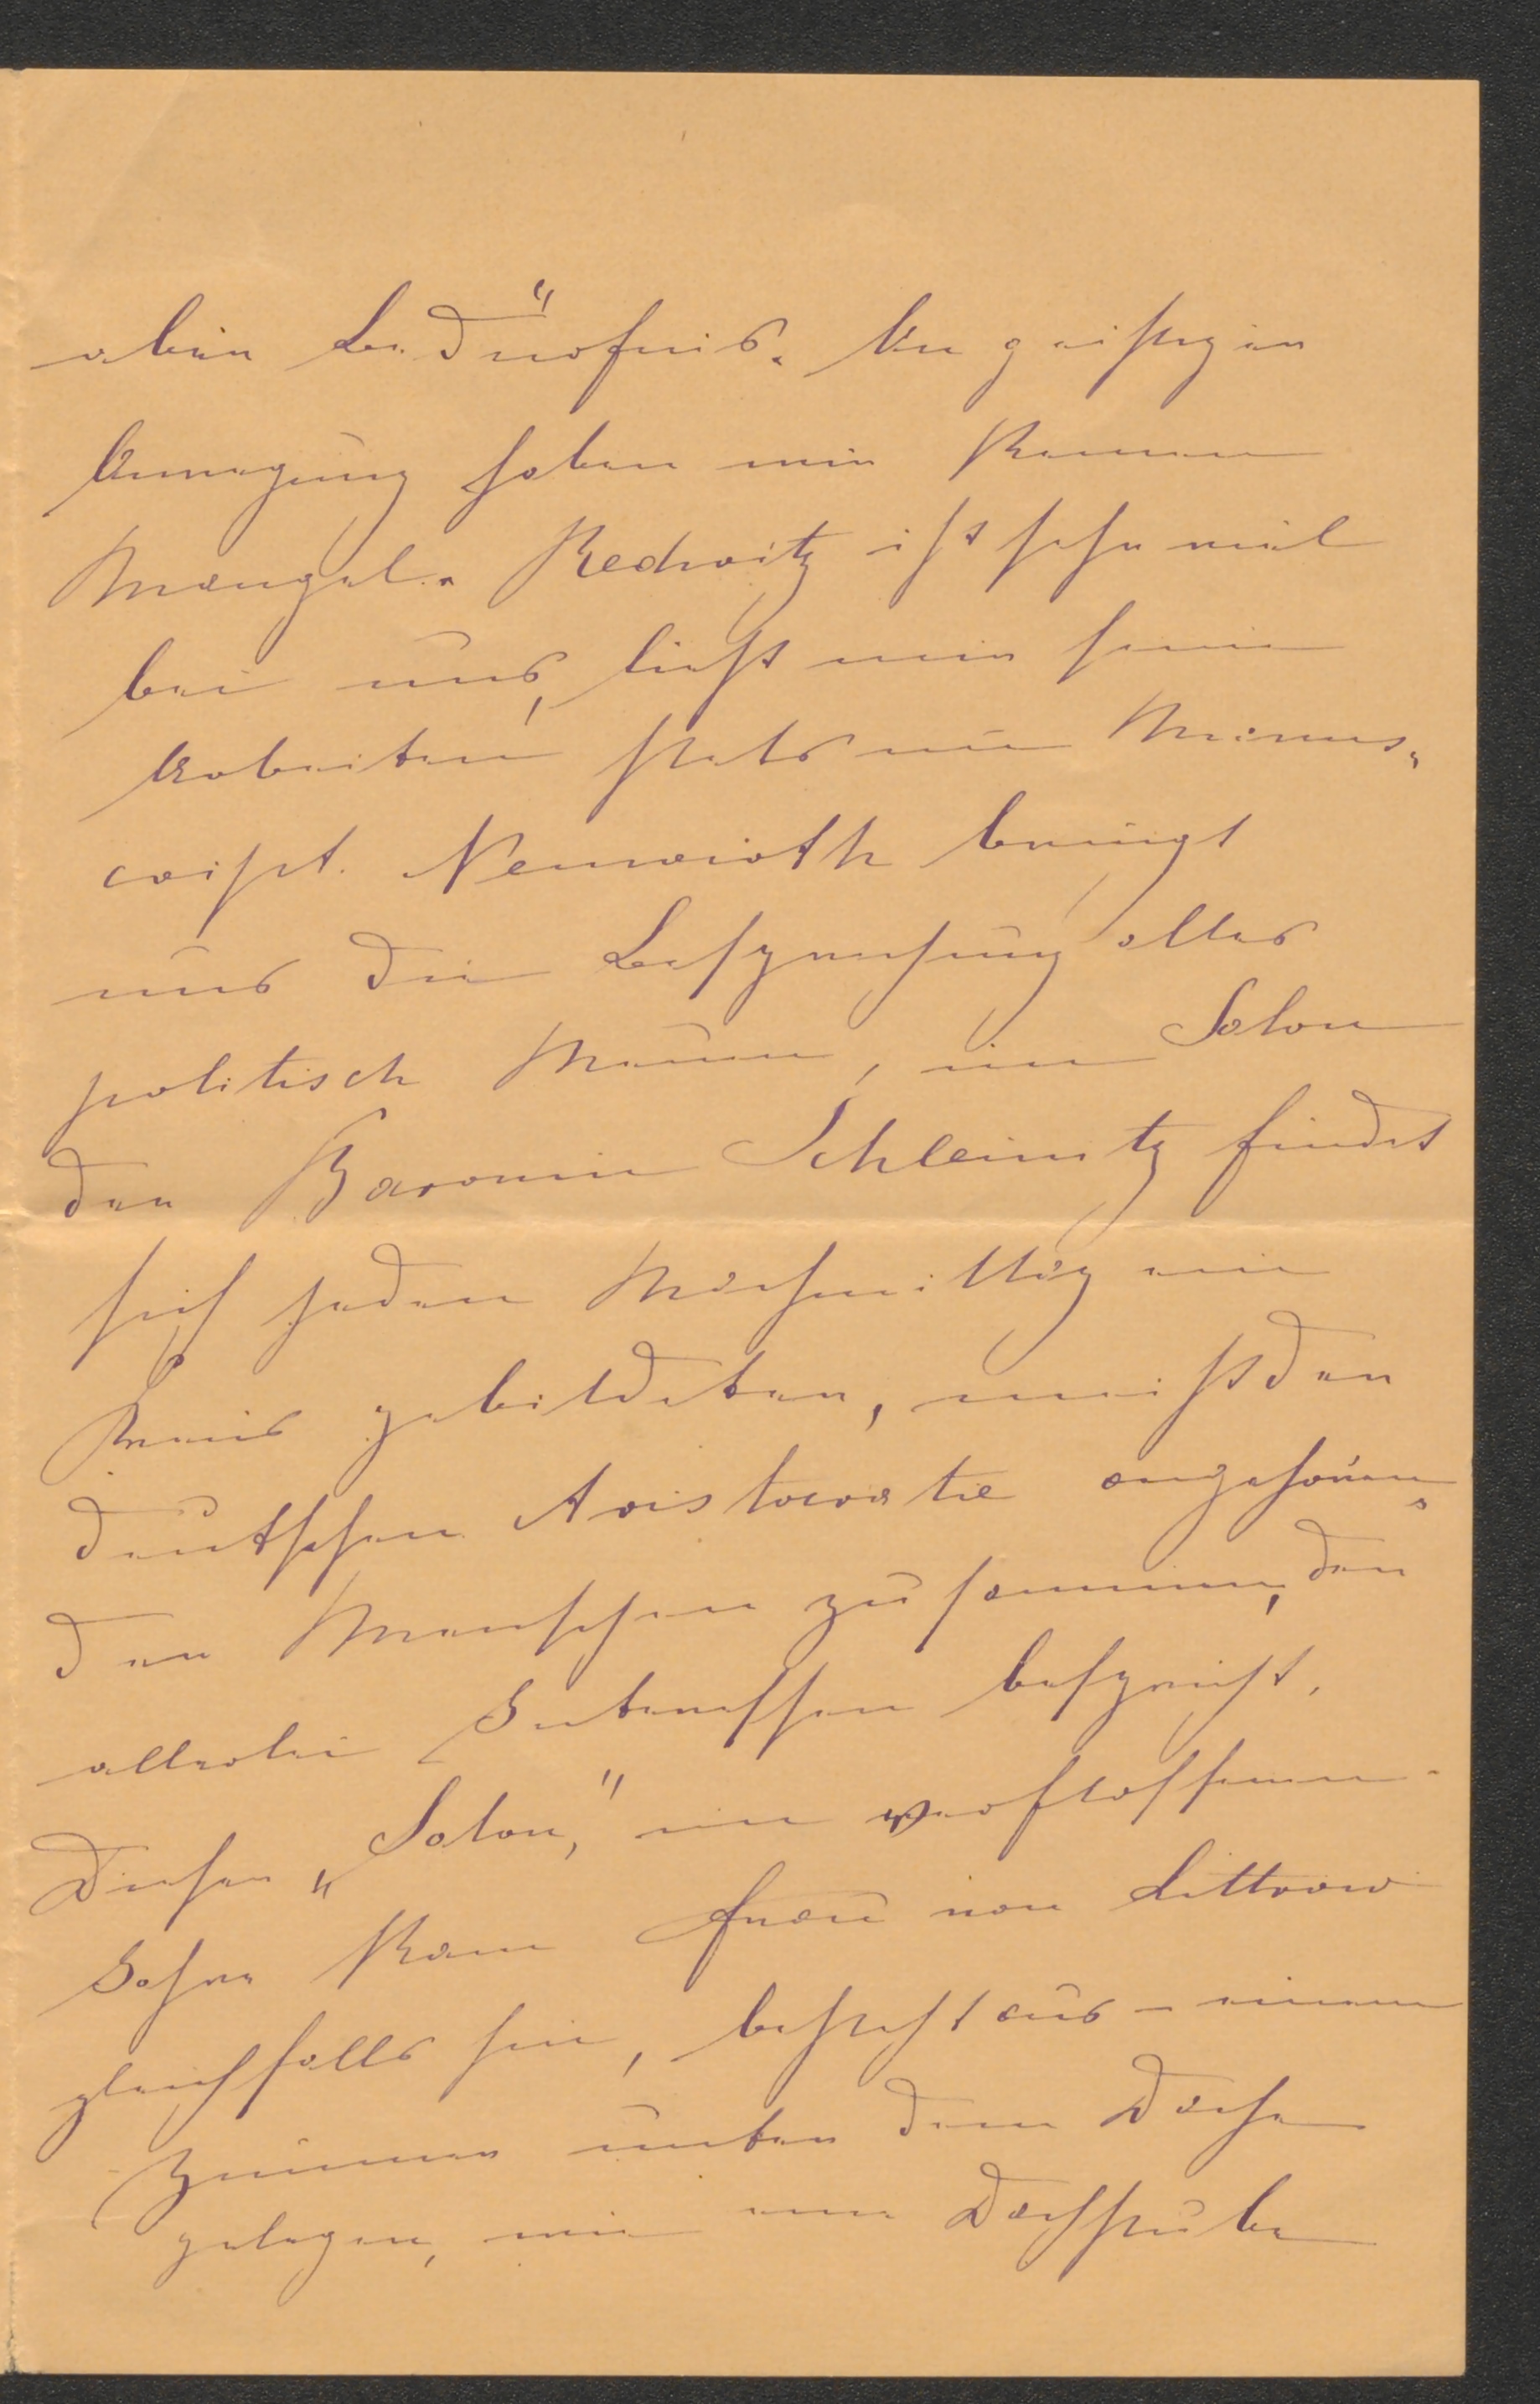 aber Bedürfnis." An geistiger
Anregung haben wir keinen
Mangel. Redwitz ist sehr viel
bei uns, liest mir seine
Arbeiten stets im Manus-
cript. Neuwirth bringt
uns die Besprechung alles
politisch Neuen, im Salon
der Baronin Schleinitz findet
sich jeden Nachmittag ein
Kreis gebildeter, meist der
deutschen Aristocratie angehören-
der Menschen zusammen, der
allerlei Interessen bespricht.
Dieser „Salon," im verflossenen
Jahre kam Frau von Littrow
gleichfalls hin, besteht aus – einem
Zimmer unter dem Dache
gelegen, wie eine Dachstube